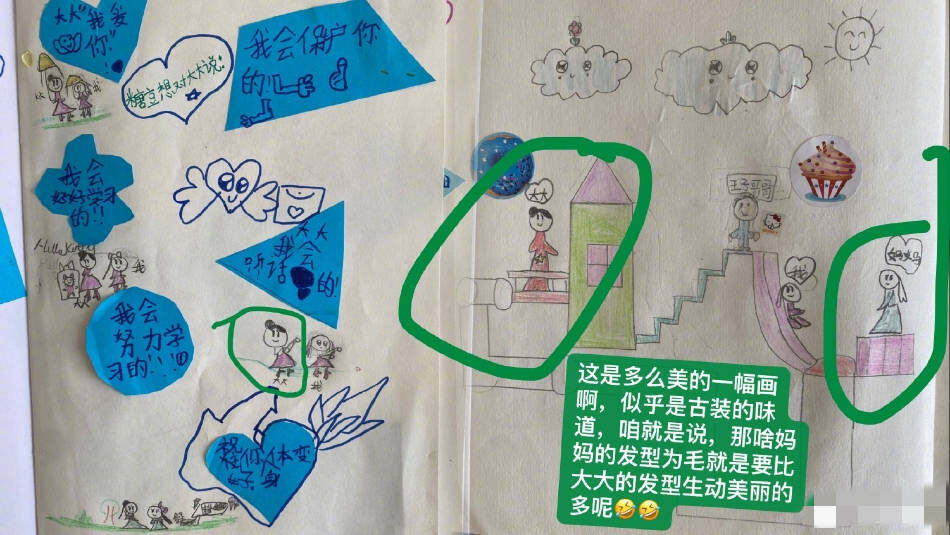 大大"我爱
你!"
糖豆想对大大说:
我会保护你
的!
我会
好好学习
的!!
Hello Kitty
我
大大
我会
听话
的!
我会
努力学
习的!!!
大大
我
大大
王子哥哥
我
妈妈
这是多么美的一幅画
啊，似乎是古装的味
道，咱就是说，那啥妈
妈的发型为毛就是要比
大大的发型生动美丽的
多呢🤣🤣